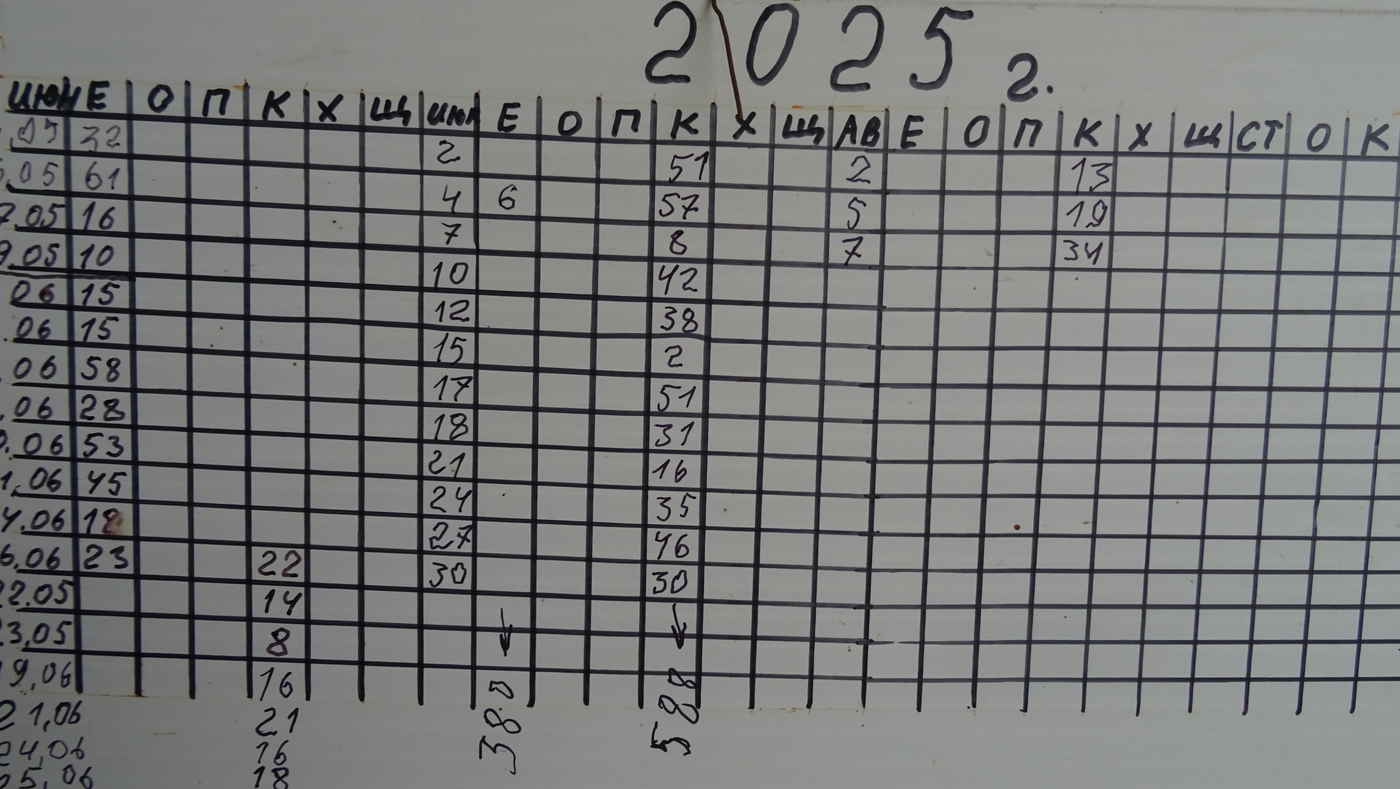 2025 г.
ИЮН Е О П К Х Щ ИЮЛ Е О П К Х Щ АВ Е О П К Х Щ СТ О К
32 2 51 2 13
.05 61 4 6 57 5 19
7.05 16 7 8 7 34
9.05 10 10 42
06 15 12 38
.06 15 15 2
06 58 17 51
.06 28 18 31
.06 53 21 16
1.06 45 24 35
4.06 18 27 46
6.06 23 22 30 30
2.05 14
3.05 8
9.06 16 380 588
21,06 21
24,06 16
25,06 18